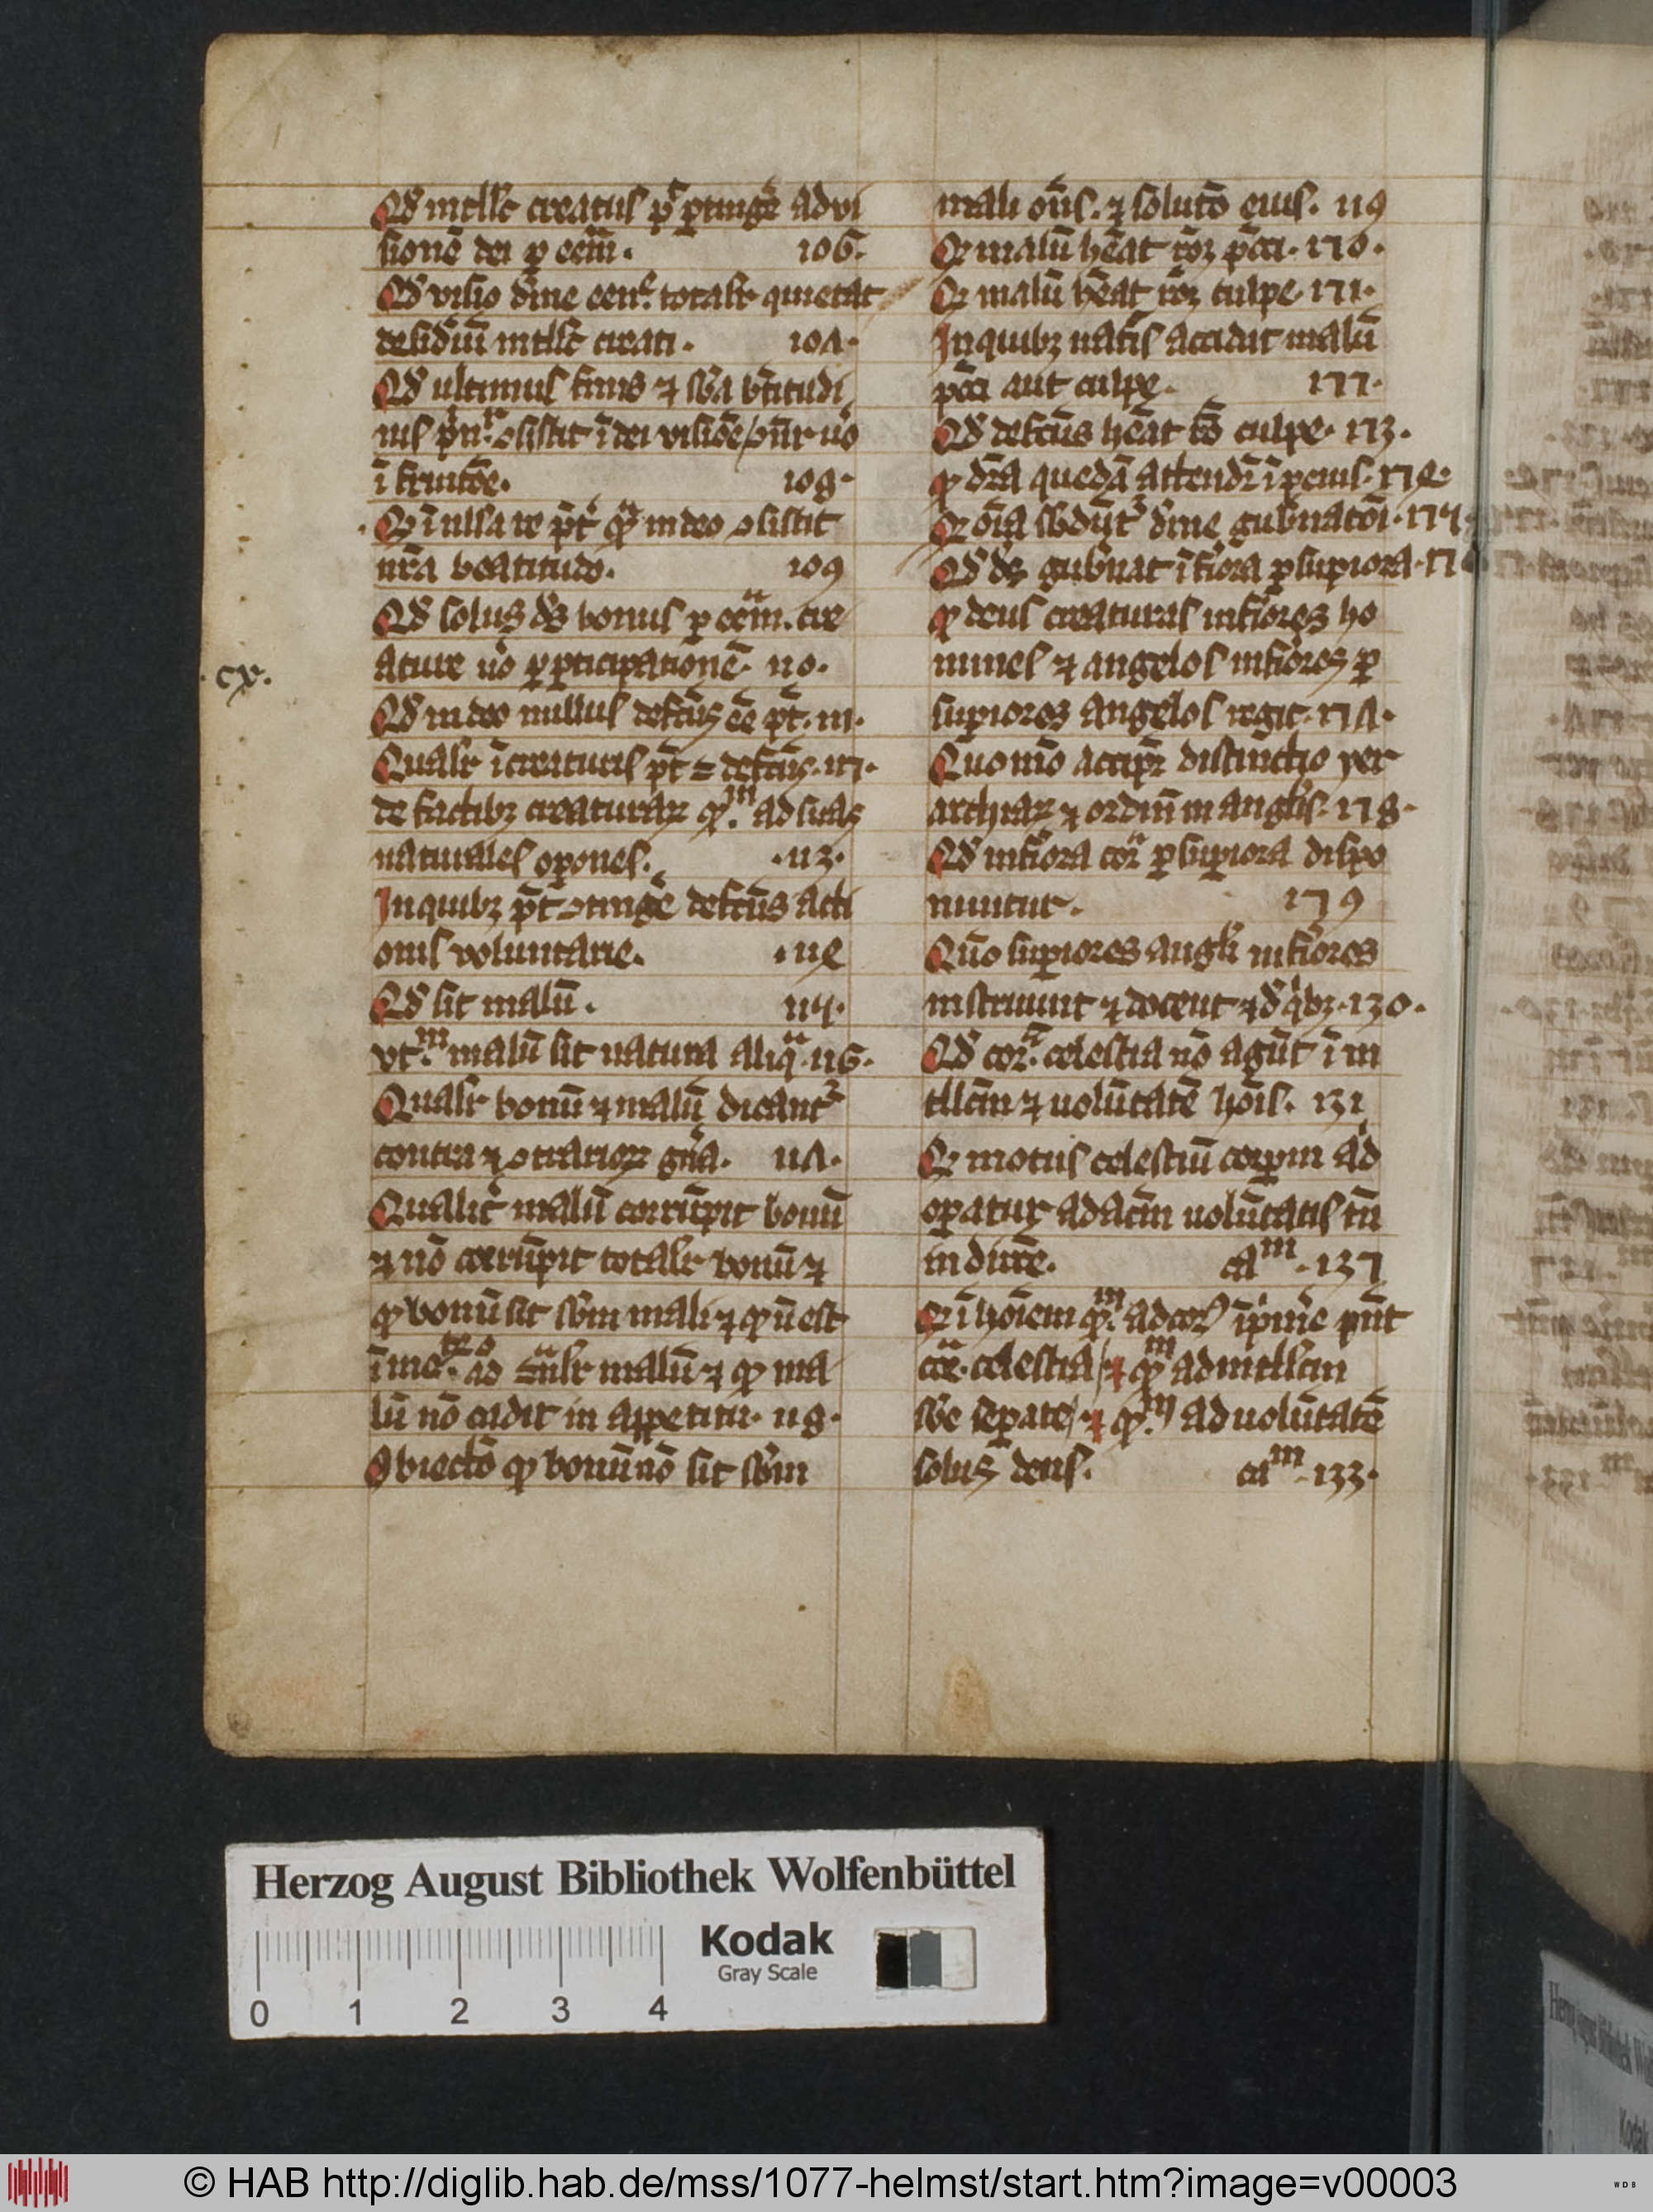 Qd intllc creatus pt ptingē ad vi
sionē dei p eēm. 106.
Qd visio dine totalr quietat
desidiū intllc creati. 107.
Qd ultimus finis ⁊ btitudi
nis ꝯsistit ī dei visiōe
ī fruitōe. 108.
Qꝫ ī nulla re pt in deo ꝯsistit
nrā beatitudo. 109
Qd solus ds bonus p eēm. cre
.cx.
ature vo p pticipationē. 110.
Qd in deo nullus defctus eē pt. 111.
Qualr ī creaturis pt eē defctus. 112.
de factibꝫ creaturaꝝ ad suas
naturales opones. .113.
In quibꝫ pt ꝯtingē defctus acti
onis voluntarie. .114
Qd sit malū. 115.
vtm malū sit natura aliqa. 116.
Qualr bonū ⁊ malū dicant
contra ⁊ ꝯtrarioꝝ gna. 117.
Qualit malū corrūpit bonū
⁊ nō corrūpit totalr bonū ⁊
ꝙ bonū sit sbm mali ⁊ ꝙ n est
malū ⁊ ꝙ ma
lū nō cadit in appetitu. 118.
Obiectō ꝙ bonū nō sit sbm
mali oñs. ⁊ solutō eius. 119
Qꝫ malū hēat rōꝫ pcci. 120.
Qꝫ malū hēat rōꝫ culpe. 121.
In quibꝫ natis accidit malū
pcci aut culpe. 122.
Qd defctus hēat rō culpe. 123.
ꝙ dra quedā attendr ī penis. 124.
Qꝫ oīa sbdunt dine gubnatoī. 125
Qd ds gubnat īfiora p supiora. 12
ꝙ deus creaturas infiores ho
mines ⁊ angelos infiores p
supiores angelos regit. 127.
Quo mō accipr distinctio yer
archiaꝝ ⁊ ordinū in anglis. 128.
Qd infiora cora p supiora dispo
nuntur. 129
Quō supiores angli infiores
instruunt ⁊ docent ⁊ d qibꝫ. 130.
Qd cora. celestia nō agūt ī in
tllcm ⁊ uolūtatē hois. 131
Qꝫ motus celestiū corpm ad
opatur ad actm uolūtatis tn
indircē. cam. 132
Qꝫ ī hoīem ad cor īpmē pnt
celestia ⁊ ꝙm ad intllcm
sbe sepate ⁊ ꝙm ad uolūtatē
solus deus. cam. 133.
Herzog August Bibliothek Wolfenbüttel
Kodak
Gray Scale
0 1 2 3 4
© HAB http://diglib.hab.de/mss/1077-helmst/start.htm?image=v00003
WDB